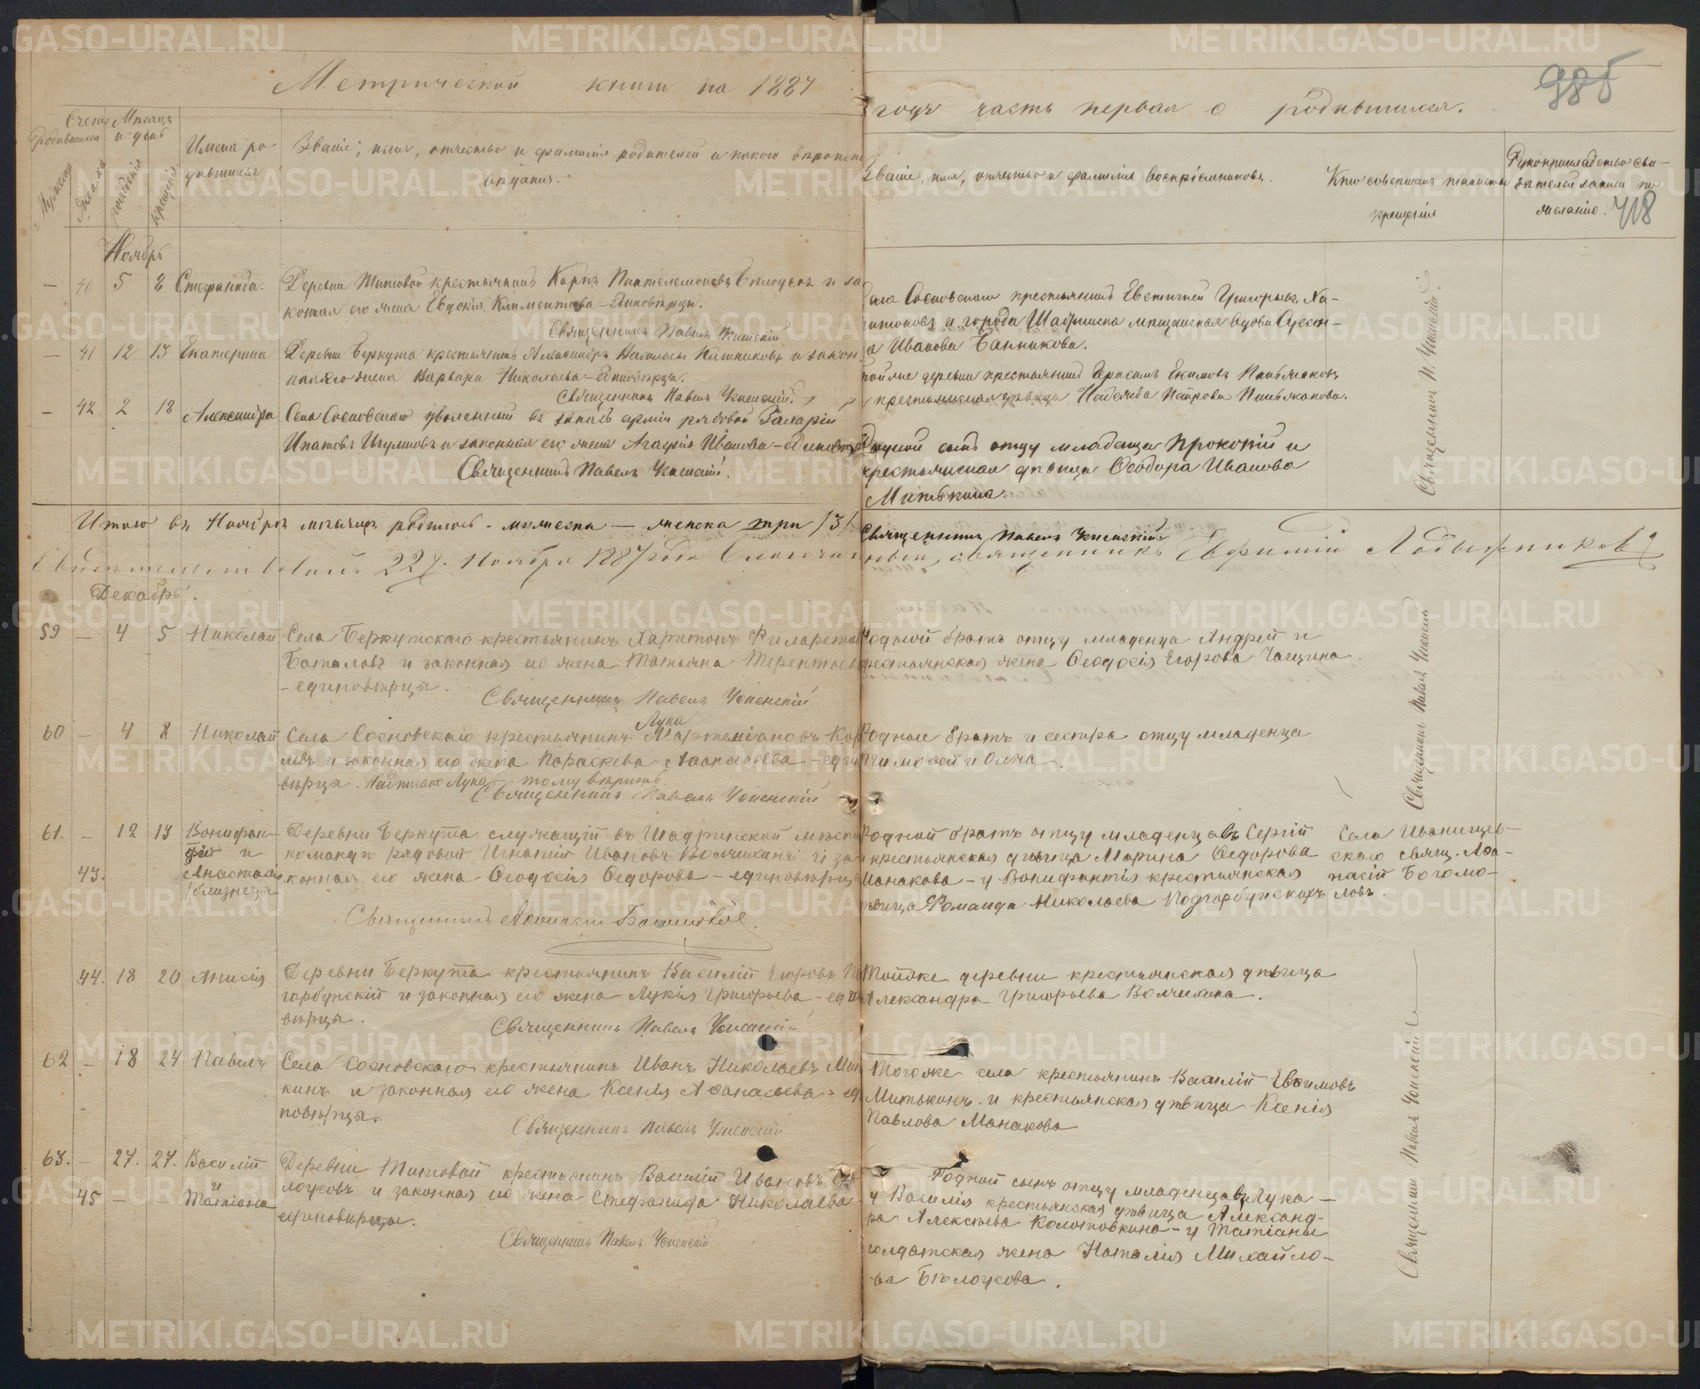 Метрической книги на 1887
годъ часть первая о родившихся.
985
Счетъ родившихся
Мѣсяцъ и день
Имена родившихся
Званіе, имя, отчество и фамилія родителей и какого вѣроисп
вѣданія.
Званіе, имя, отчество и фамилія воспріемниковъ.
Кто совершалъ таинство
крещенія
Рукоприкладство сви-
дѣтелей записи по
желанію.
718
Мужеска
Женска
рожденія
крещенія
Ноябрь
— 40 5 8 Стефанида. Деревни Титовой крестьянинъ Карпъ Пантелеимоновъ и за
конная его жена Евдокія Климентова — единовѣрцы.
Священникъ Павелъ Успенскій
Села Сосновскаго крестьянинъ Евгеній Григорьевъ Ха-
ритоновъ и города Шадринска мѣщанская вдова
Иванова Банникова.
— 41 12 13 Екатерина Деревни Беркута крестьянинъ Александръ и закон
ная его жена Варвара Николаева — единовѣрцы.
Священникъ Павелъ Успенскій.
той же деревни крестьянинъ Герасимъ Екимовъ
крестьянская дѣвица Надежда Петрова
— 42 2 18 Александра Села Сосновскаго уволенный въ запасъ арміи рядовой
Ипатовъ и законная его жена Агафія Иванова — единовѣрцы
Священникъ Павелъ Успенскій.
Родной сынъ отцу младенца Прокопій и
крестьянская дѣвица Ѳеодора Иванова
Митькина.
Священникъ П. Успенскій.
Итого въ Ноябрѣ мѣсяцѣ родилось - мужеска — женска три /3/.
Священникъ Павелъ Успенскій
Свидѣтельствовалъ 22 Ноября 1887 года Благочин
ный, священникъ Ефимій Ладыжниковъ
Декабрь.
59 — 4 5 Николай Села Беркутскаго крестьянинъ Харитонъ Филаретов
Баталовъ и законная его жена Татьяна Терентьева
- единовѣрцы.
Священникъ Павелъ Успенскій
Родной братъ отцу младенца Андрей и
крестьянская жена Ѳеодосія Егорова Чащина.
60 — 4 8 Николай Села Сосновскаго крестьянинъ Лука Мартеміановъ Кор
ловъ и законная его жена Параскева Аѳанасьева — едино
вѣрцы. Надписано Лука — тому вѣрить
Священникъ Павелъ Успенскій
Родные братъ и сестра отцу младенца
Тимоѳей и Ольга.
Священникъ Павелъ Успенскій
61. — 12 13 Вонифан- Деревни Беркута служащій въ Шадринской мѣстной
тій и командѣ рядовой Игнатій Ивановъ Волчихинъ и за
43. Анастасія конная его жена Ѳеодосія Ѳедорова — единовѣрцы
/близнецы
Священникъ Аѳанасій Богомоловъ.
Родной братъ отцу младенцавъ Сергій
и крестьянская дѣвица Марина Ѳедорова
Манакова — у Вонифантія крестьянская
дѣвица Романида Николаева Подгорбунскихъ
Села Иванищев-
скаго свящ. Аѳа-
насій Богомо-
ловъ
44. 18 20 Анисія Деревни Беркута крестьянинъ Василій Егоровъ По
горбунскій и законная его жена Лукія Григорьева — едино
вѣрцы.
Священникъ Павелъ Успенскій
Тойже деревни крестьянская дѣвица
Александра Григорьева Волчихина.
62 — 18 24 Павелъ Села Сосновскаго крестьянинъ Иванъ Николаевъ Мить
кинъ и законная его жена Ксенія Аѳанасьева — еди
новѣрцы.
Священникъ Павелъ Успенскій
Тогоже села крестьянинъ Василій Евѳимовъ
Митькинъ и крестьянская дѣвица Ксенія
Павлова Манакова
63. — 27. 27. Василій Деревни Титовой крестьянинъ Василій Ивановъ Бѣ
и лоусовъ и законная его жена Стефанида Николаева
45 — — Татіана единовѣрцы.
Священникъ Павелъ Успенскій
Родной сынъ отцу младенцавъ Лука —
у Василія крестьянская дѣвица Александ-
ра Алексѣева Колотовкина — у Татіаны
солдатская жена Наталія Михайло-
ва Бѣлоусова.
Священникъ Павелъ Успенскій
METRIKI.GASO-URAL.RU